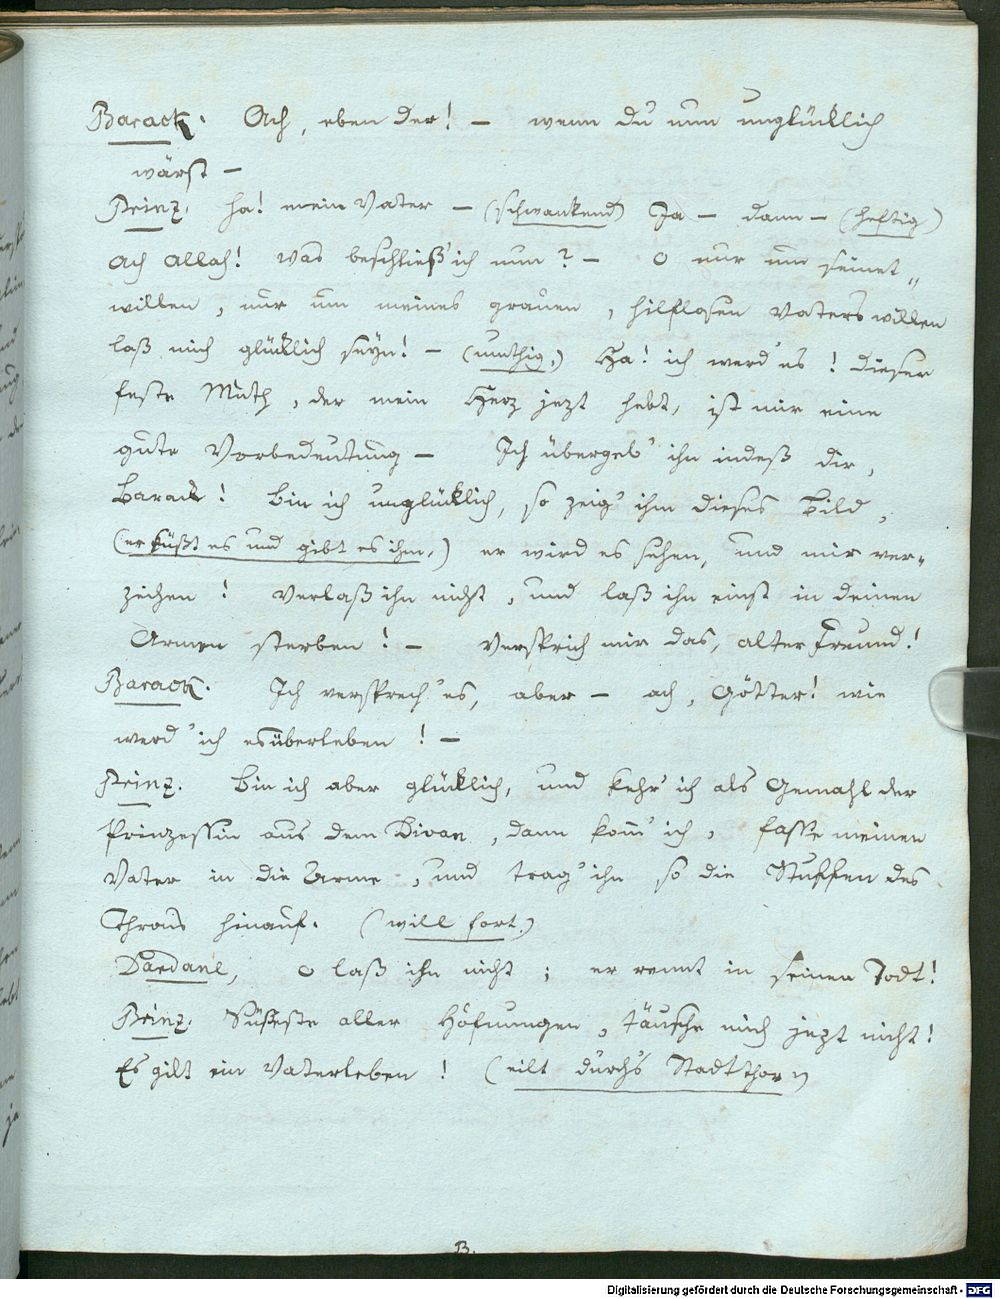 Barack. Ach, eben der! — wenn du nun unglücklich
wärst —
Prinz. Ha! mein Vater — (schwankend) Ja — dann — (heftig)
Ach Allah! was beschließ' ich nun? — O nur um seinet„
willen, nur um meines grauen, hilflosen Vaters willen
laß mich glücklich seyn! — (muthig.) Ha! ich werd' es! dieser
feste Muth, der mein Herz jezt hebt, ist mir eine
gute Vorbedeutung — Ich übergeb' ihn indeß dir,
Barack! bin ich unglücklich, so zeig' ihm dieses Bild,
(er küßt es und gibt es ihm.) er wird es sehen, und mir ver-
zeihen! Verlaß ihn nicht, und laß ihn einst in deinen
Armen sterben! — Versprich mir das, alter Freund!
Barack. Ich versprech' es, aber — ach, Götter! wie
werd' ich es überleben! —
Prinz. Bin ich aber glücklich, und kehr' ich als Gemahl der
Prinzessin aus dem Divan, dann kom̄' ich, fasse meinen
Vater in die Arme, und trag' ihn so die Stuffen des
Throns hinauf. (will fort.)
Dardane, O laß ihn nicht; er rennt in seinen Todt!
Prinz. Süßeste aller Hofnungen, täusche mich jezt nicht!
Es gilt ein Vaterleben! (eilt durch's Stadtthor)
B.
Digitalisierung gefördert durch die Deutsche Forschungsgemeinschaft - DFG